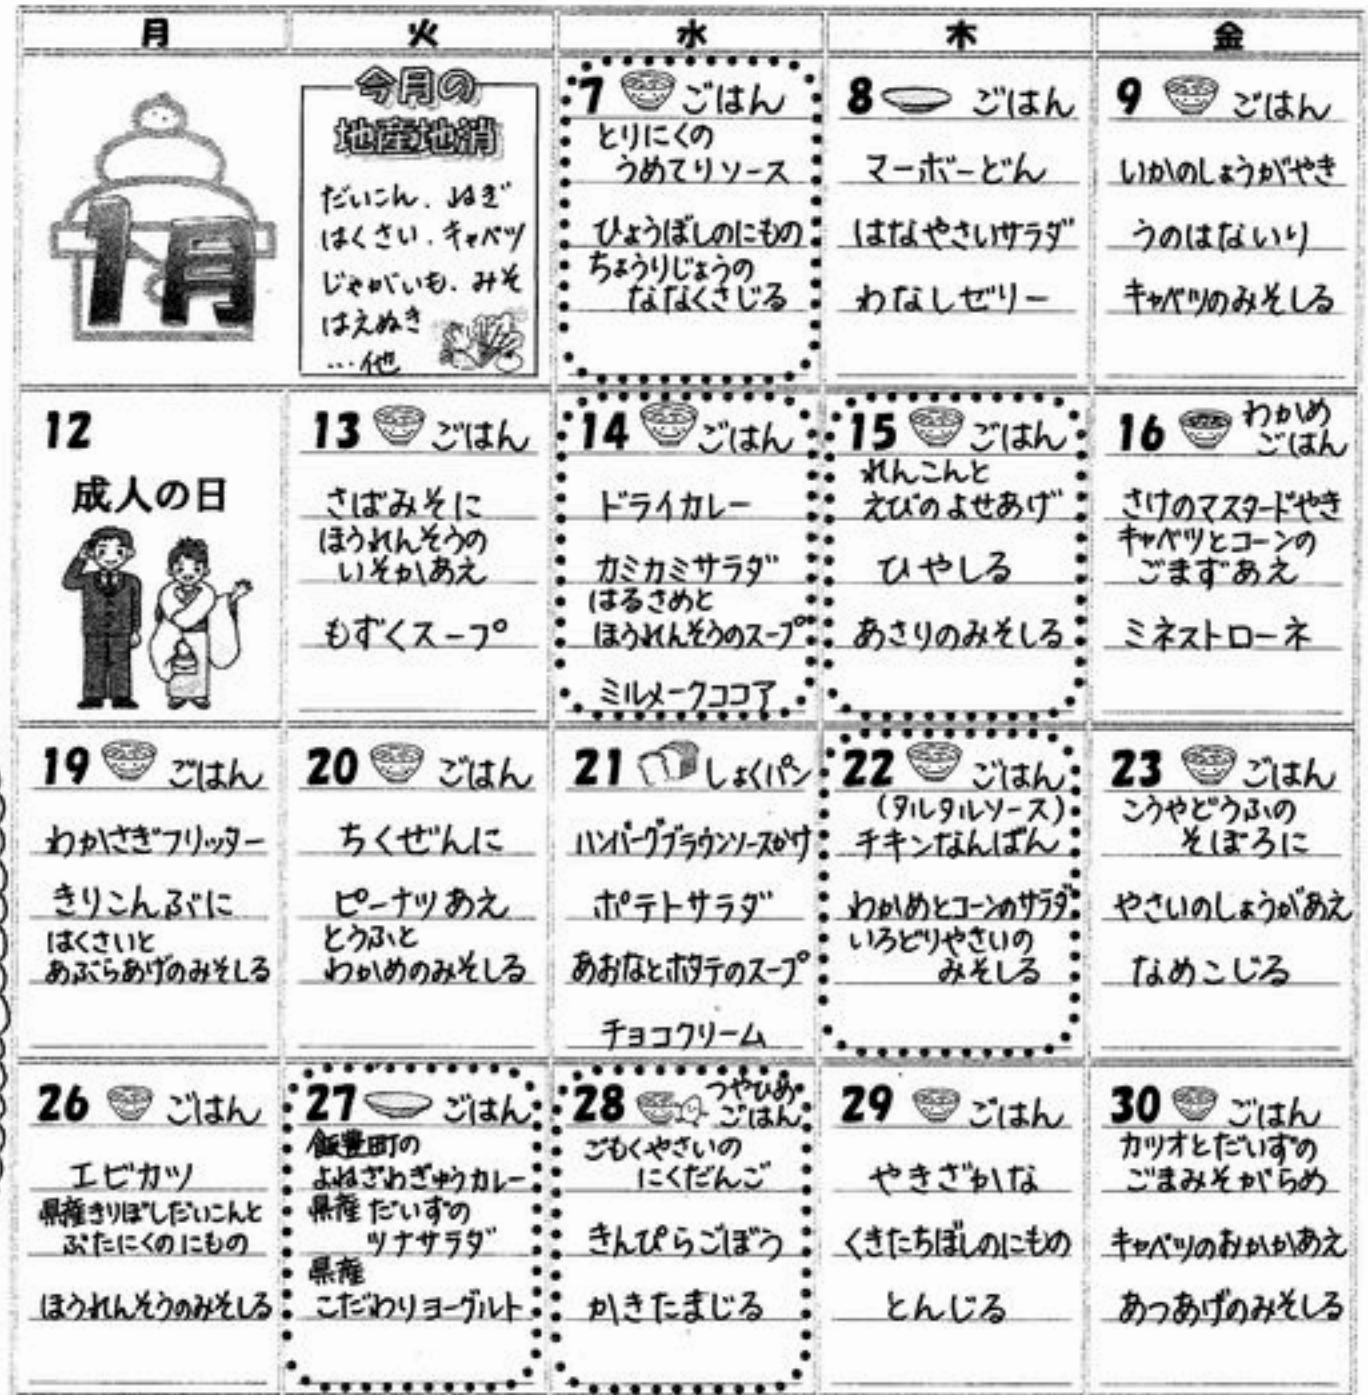 月 火 水 木 金
1月
今月の
地産地消
だいこん、ねぎ
はくさい、キャベツ
じゃがいも、みそ
はえぬき
…他
7 ごはん
とりにくの
うめてりソース
ひょうぼしのにもの
ちょうりじょうの
ななくさじる
8 ごはん
マーボーどん
はなやさいサラダ
わなしゼリー
9 ごはん
いかのしょうがやき
うのはないり
キャベツのみそしる
12
成人の日
13 ごはん
さばみそに
ほうれんそうの
いそかあえ
もずくスープ
14 ごはん
ドライカレー
カミカミサラダ
はるさめと
ほうれんそうのスープ
ミルメークココア
15 ごはん
れんこんと
えびのよせあげ
ひやしる
あさりのみそしる
16 わかめ
ごはん
さけのマスタードやき
キャベツとコーンの
ごまずあえ
ミネストローネ
19 ごはん
わかさぎフリッター
きりこんぶに
はくさいと
あぶらあげのみそしる
20 ごはん
ちくぜんに
ピーナツあえ
とうふと
わかめのみそしる
21 しょくパン
ハンバーグブラウンソースかけ
ポテトサラダ
あおなとホタテのスープ
チョコクリーム
22 ごはん
(タルタルソース)
チキンなんばん
わかめとコーンのサラダ
いろどりやさいの
みそしる
23 ごはん
こうやどうふの
そぼろに
やさいのしょうがあえ
なめこじる
26 ごはん
エビカツ
県産きりぼしだいこんと
ぶたにくのにもの
ほうれんそうのみそしる
27 ごはん
飯豊町の
よねざわぎゅうカレー
県産だいずの
ツナサラダ
県産
こだわりヨーグルト
28 つやひめ
ごはん
ごもくやさいの
にくだんご
きんぴらごぼう
かきたまじる
29 ごはん
やきざかな
くきたちぼしのにもの
とんじる
30 ごはん
カツオとだいずの
ごまみそがらめ
キャベツのおかかあえ
あつあげのみそしる